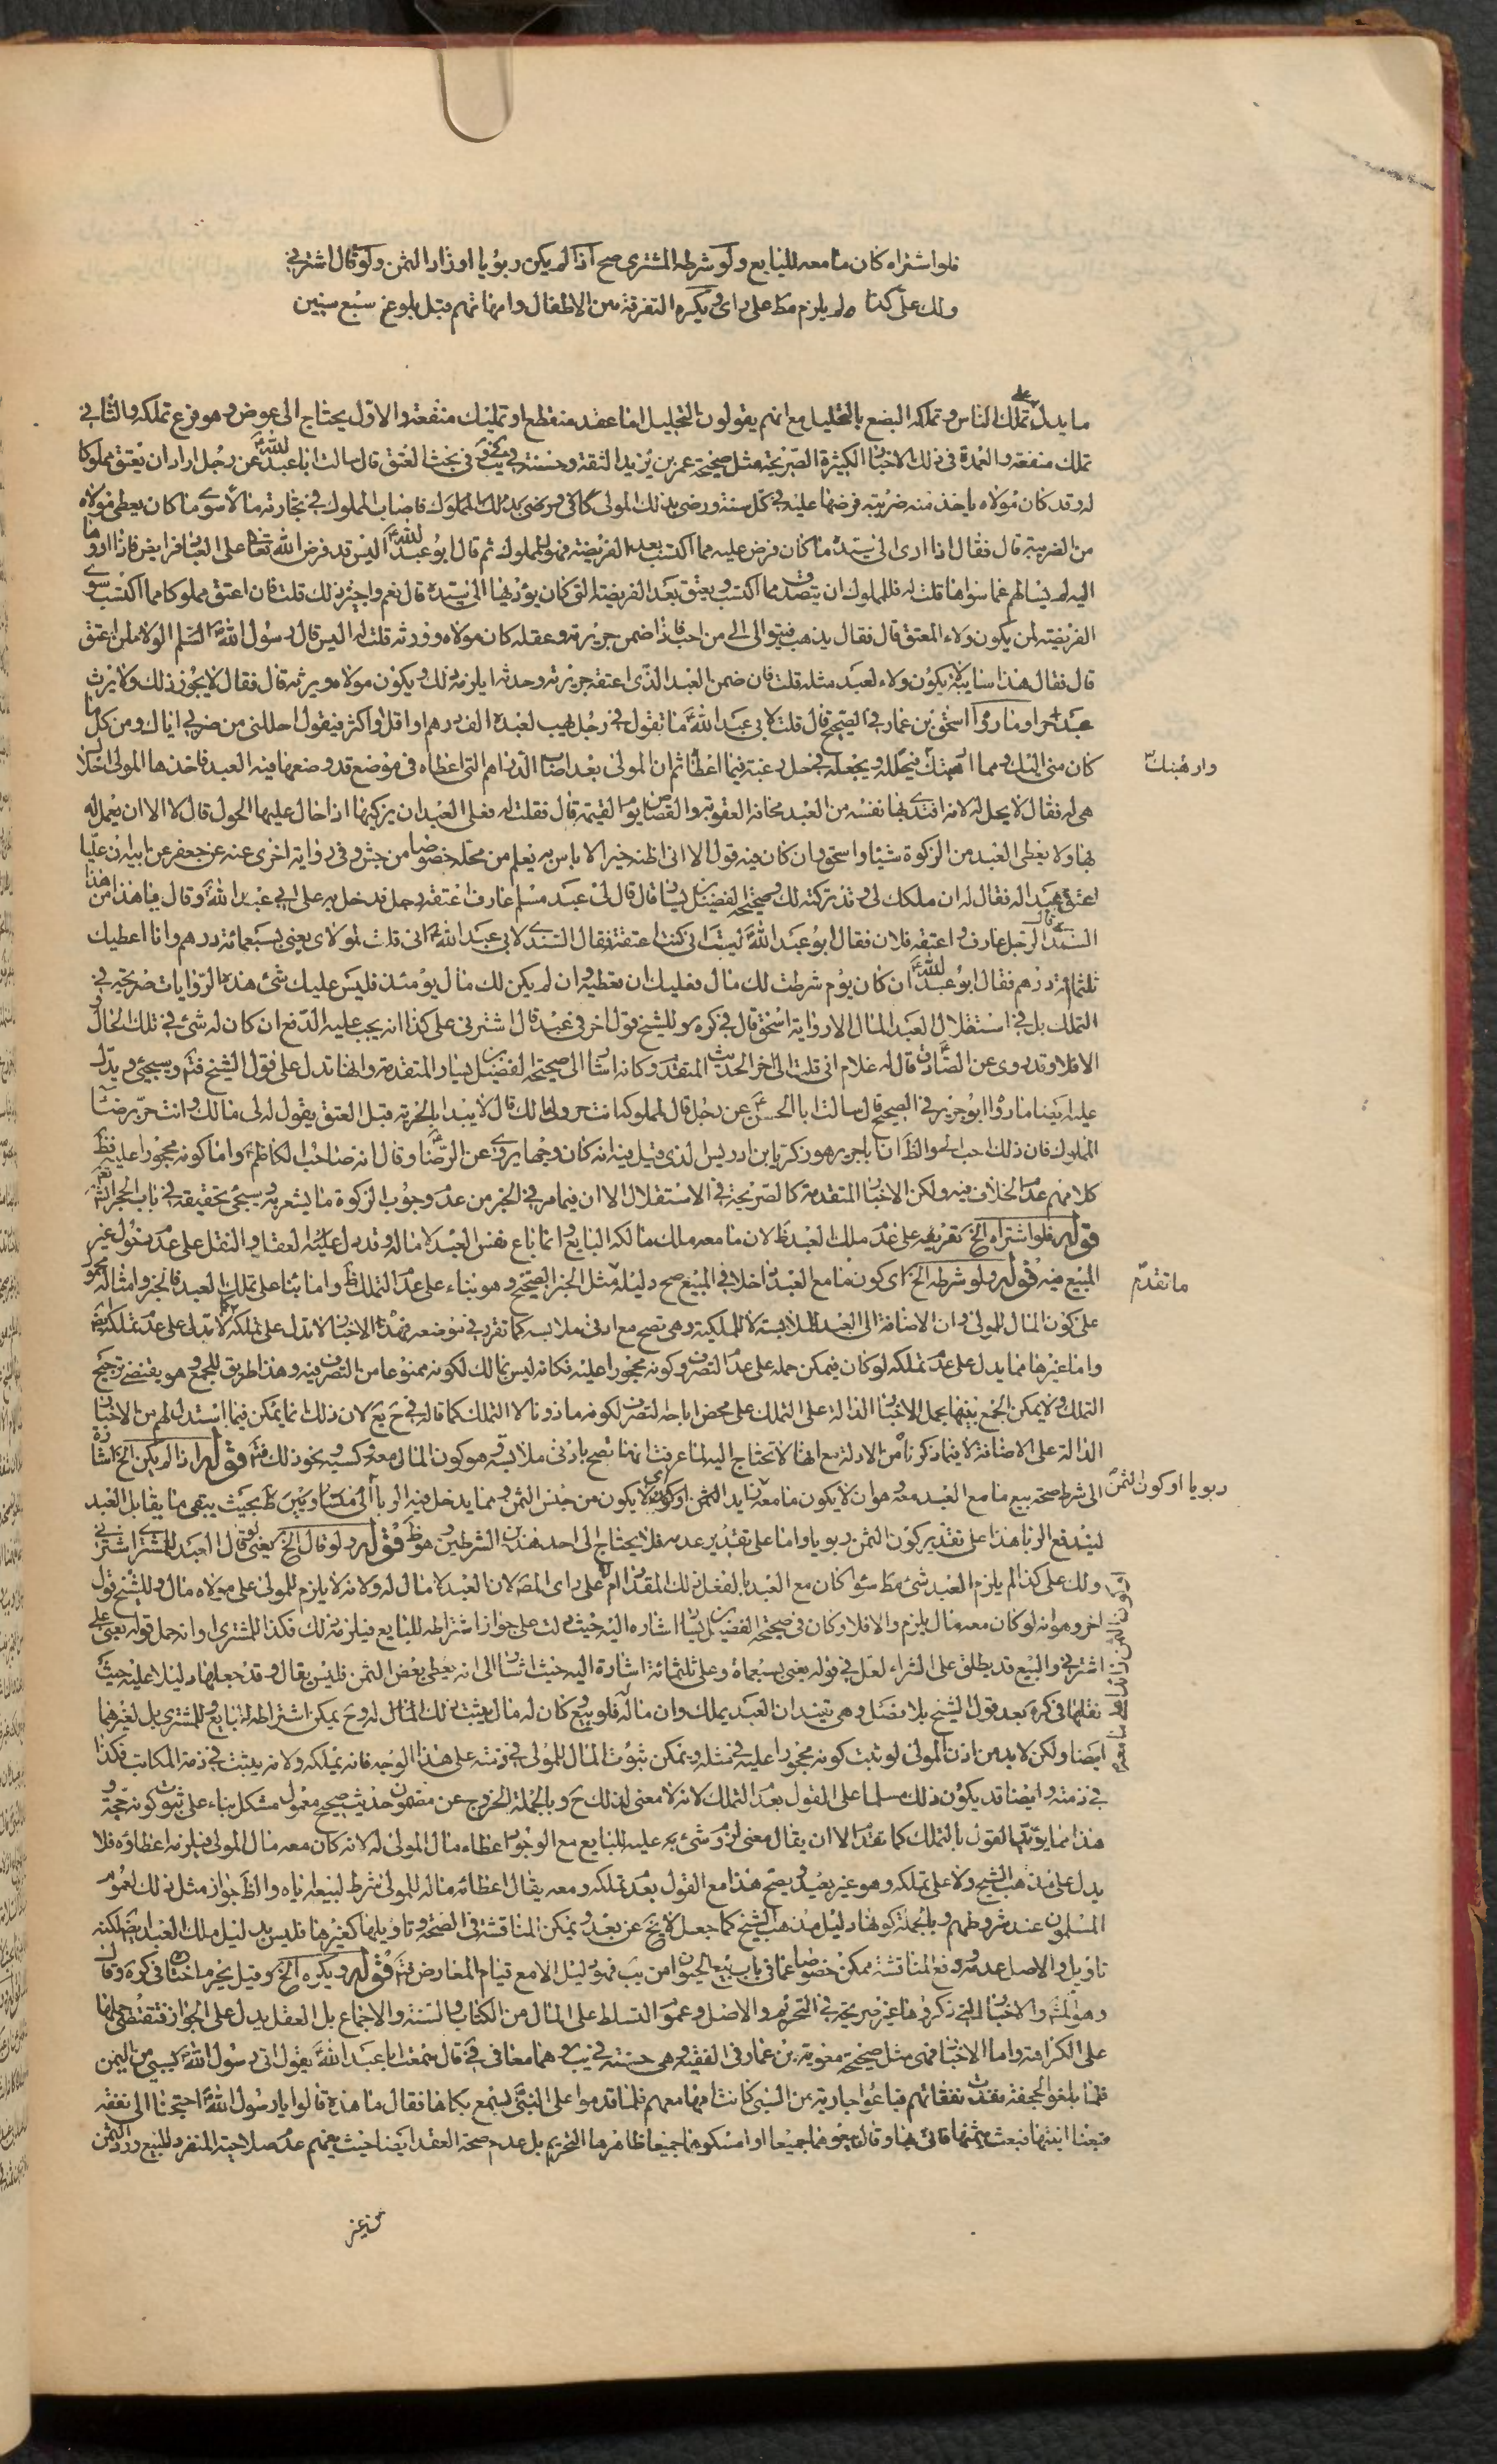 فلو اشتراه كان ما معه للبايع ولو شرطه المشترى صح اذا لم يكن ربويا او زاد الثمن ولو قال اشترنى
ولك علىّ كذا لم يلزم مط على راى ويكره التفرقة بين الاطفال وامهاتهم قبل بلوغ سبع سنين
ما يدل على تملك الناس وتملكه البضع بالتحليل مع انهم يقولون التحليل اما عقد منقطع او تمليك منفعة والاول يحتاج الى عوض وهو فرع تملكه والثانى
تملك منفعة والعمدة فى ذلك الاخبار الكثيرة الصريحة مثل صحيحة عمر بن يزيد الثقة وحسنة فى بحث العتق قال سالت ابا عبد الله عن رجل اراد ان يعتق مملوكا
له وقد كان مولاه ياخذ منه ضريبة فرضها عليه فى كل سنة ورضى بذلك المولى فاصاب المملوك فى تجارته مالا سوى ما كان يعطى مولاه
من الضريبة قال فقال اذا ادى الى سيده ما كان فرض عليه فما اكتسب بعد الفريضة فهو للمملوك ثم قال ابو عبد الله اليس قد فرض الله تعالى على العباد فرايض فاذا ادوها
اليه لم يسالهم عما سواها قلت له فللمملوك ان يتصدق مما اكتسب ويعتق بعد الفريضة التى كان يؤديها الى سيده قال نعم واجر ذلك له قلت فان اعتق مملوكا مما اكتسب سوى
الفريضة لمن يكون ولاء المعتق قال فقال يذهب فيتوالى الى من احب فاذا ضمن جريرته وعقله كان مولاه وورثه قلت له اليس قال رسول الله الولاء لمن اعتق
قال فقال هذا سايبة لا يكون ولاءه لعبد مثله قلت فان ضمن العبد الذى اعتقه جريرته وحدثه ايلزمه ذلك ويكون مولاه ويرثه قال فقال لا يجوز ذلك ولا يرث
عبد حرا وما روى اسحق بن عمار فى الصحيح قال قلت لابى عبد الله ما تقول فى رجل يهب لعبده الف درهم او اقل او اكثر فيقول احللنى من ضربى اياك ومن كل ما
كان منى اليك ومما اخفتك فيحلله ويجعله فى حل رغبة فيما اعطاه ثم ان المولى بعد اصاب الدراهم التى اعطاه فى موضع قد وضعها فيه العبد فاخذها المولى احلال
وارهبتك
هى له فقال لا يحل له لانه افتدى بها نفسه من العبد مخافة العقوبة والقصاص يوم القيمة قال فقلت له فعلى العبد ان يزكيها اذا حال عليها الحول قال لا الا ان يعمل له
بها ولا يعطى العبد من الزكوة شيئا
اعتق عبدا له فقال له ان ملكك لى وقد تركته لك وصحيحة الفضيل بن يسار قال قال لى عبد مسلم عارف اعتقه رجل فدخل به على ابى عبد الله وقال يا هذا من هذا
السندى قال رجل عارف واعتقه فلان فقال ابو عبد الله ليت انى كنت اعتقته فقال السندى لابى عبد الله انى قلت لمولاى بعنى بسبعمائة درهم وانا اعطيك
ثلثمائة درهم فقال ابو عبد الله ان كان يوم شرطت لك مال فعليك ان تعطيه وان لم يكن لك مال يومئذ فليس عليك شئ هذه الروايات صريحة فى
التملك بل فى استقلال العبد بالمال الا رواية اسحق قال فى كره وللشيخ قول اخر فى عبد قال اشترنى على كذا انه يجب عليه الدفع ان كان له شئ فى تلك الحال و
الا فلا وقد روى عن الصادق قال له غلام انى قلت الى اخر الحديث المتقدم وكانه اشار الى صحيحة الفضيل بن يسار المتقدمة وانها تدل على قول الشيخ فتم وسيجئ ويدل
عليه ايضا ما رواه ابو جرير فى الصحيح قال سالت ابا الحسن عن رجل قال لمملوكه انت حر ولى مالك قال لا يبدا بالحرية قبل العتق يقول له لى مالك وانت حر برضا
المملوك فان ذلك احب الى والظ ان ابا جرير هو زكريا بن ادريس الذى قيل فيه انه كان وجها يروى عن الرضا وقال انه صاحب الكاظم واما كونه محجورا عليه فظ
كلامهم عدم الخلاف فيه ولكن الاخبار المتقدمة كالصريحة فى الاستقلال الا ان فيما مر فى الخبر من عدم وجوب الزكوة ما يشعر به وسيجئ تحقيقه فى باب الحجر
قوله فلو اشتراه الخ تفريعه على عدم ملك العبد ظ لان ما معه ملك مالكه البايع وانما باع نفس العبد لا ماله وقد يدل عليه العقل والنقل على عدم دخول غير
المبيع فيه قوله ولو شرطه الخ اى كون ما مع العبد داخلا فى المبيع صح دليله مثل الخبر الصحيح وهو بناء على عدم التملك ظ واما بناء على تملك العبد فالخبر وامثاله محمول
ما تقدم
على كون المال للمولى وان الاضافة الى العبد للملابسة لا للملكية وهى تصح مع ادنى ملابسة كما تقرر فى موضعه فهذه الاخبار لا تدل على تملكه كما لا تدل على عدم تملكه ايضا
واما غيرها مما يدل على عدم تملكه لو كان فيمكن حمله على عدم التصرف وكونه محجورا عليه فكانه ليس بمالك لكونه ممنوعا من التصرف فيه وهذا طريق للجمع وهو يقتضى ترجيح
التملك ولا يمكن الجمع بينهما بحمل الاخبار الدالة على التملك على محض اباحة التصرف لكونه ماذونا لا التملك كما قاله فى ح يع لان ذلك انما يمكن فيما استدل لهم من الاخبار
الدالة على الاضافة لا فيما ذكرناه من الادلة مع انها لا تحتاج اليه لما عرفت انها تصح بادنى ملابسة وهو كون المال معه وكسبه ونحو ذلك فتم قوله اذا لم يكن الخ اشارة
الى شرط صحة بيع ما مع العبد معه وهو ان لا يكون ما معه ربويا او كون الثمن زايدا
ربويا او كون الثمن
ليندفع الربا هذا على تقدير كون الثمن ربويا واما على تقدير عدمه فلا يحتاج الى احد هذين الشرطين وهو ظ قوله ولو قال الخ يعنى لو قال العبد للمشترى اشترنى
ولك على كذا لم يلزم العبد شئ مط سواء كان مع العبد بالفعل ذلك المقدار ام لا على راى المص لان العبد لا مال له ولانه لا يلزم للمولى على مولاه مال وللشيخ قول
اخر وهو انه لو كان معه مال يلزم والا فلا وكان فى صحيحة الفضيل بن يسار اشارة اليه حيث دلت على جواز اشتراطه للبايع فيلزم ذلك فكذا للمشترى او انه حمل قوله بعنى على
اشترنى والبيع قد يطلق على الشراء لعل فى قوله بعنى بسبعمائة وعلى ثلثمائة اشارة اليه حيث اشار الى انه يعطى بعض الثمن فليس يقال وقد جعلها دليلا عليه حيث
نقلها فى كره بعد قول الشيخ بلا فصل وهى تفيد ان العبد يملك وان ماله له فلو بيع كان له مال يثبت ذلك المال له وح يمكن اشتراطه للبايع وللمشترى بل لغيرهما
ايضا ولكن لا بد من اذن المولى لو ثبت كونه محجورا عليه فى مثله ويمكن ثبوت المال للمولى فى ذمته على هذا الوجه فانه يملكه ولانه يثبت فى ذمة المكاتب فكذا
فى ذمته وايضا قد يكون ذلك مسلما على القول بعدم التملك لانه لا معنى لذلك ح وبالجملة الخروج عن مضمون حديث صحيح معمول مشكل بناء على ثبوت كونه حجة و
هذا مما يؤيد القول بالتملك كما تقدم الا ان يقال معنى لزوم شئ به عليه للبايع مع الوجود اعطاء مال المولى له لانه كان معه مال المولى فيلزمه اعطاؤه فلا
يدل على مذهب الشيخ ولا على تملكه وهو غير بعيد ويصح هذا مع القول بعدم تملكه ومعه يقال اعطائه ماله للمولى بشرط لبيعه اياه والظ جواز مثل ذلك لعموم
المسلمون عند شروطهم وبالجملة كونها دليل مذهب الشيخ كما جعل لا يخ عن بعد ويمكن المناقشة فى الصحة وتاويلها كغيرها فليس بدليل ملك العبد ايضا لكنه
تاويل والاصل عدمه ودفع المناقشة ممكن خصوصا عما فى باب بيع الحيوان من يب فهو دليل الا مع قيام المعارض فتم قوله ويكره الخ وقيل يحرم اختاره فى كره وقال
وهو المشهور والاخبار التى ذكروها غير صريحة فى التحريم والاصل وعموم التسلط على المال من الكتاب والسنة والاجماع بل العقل يدل على الجواز فتقتضى حملها
على الكراهة واما الاخبار فهى مثل صحيحة معوية بن عمار فى الفقيه وهى حسنة فى يب وهما معا فى فى قال سمعت ابا عبد الله يقول اتى رسول الله بسبى من اليمن
فلما بلغوا الجحفة نفدت نفقاتهم فباعوا جارية من السبى كانت امها معهم فلما قدموا على النبى سمع بكاءها فقال ما هذه قالوا يا رسول الله احتجنا الى نفقة
فبعنا ابنتها فبعث بثمنها فاتى بها وقال بيعوهما جميعا او امسكوهما جميعا ظاهرها التحريم بل عدم صحة العقد ايضا حيث يفهم عدم صلاحية المنفرد للبيع ورد الثمن